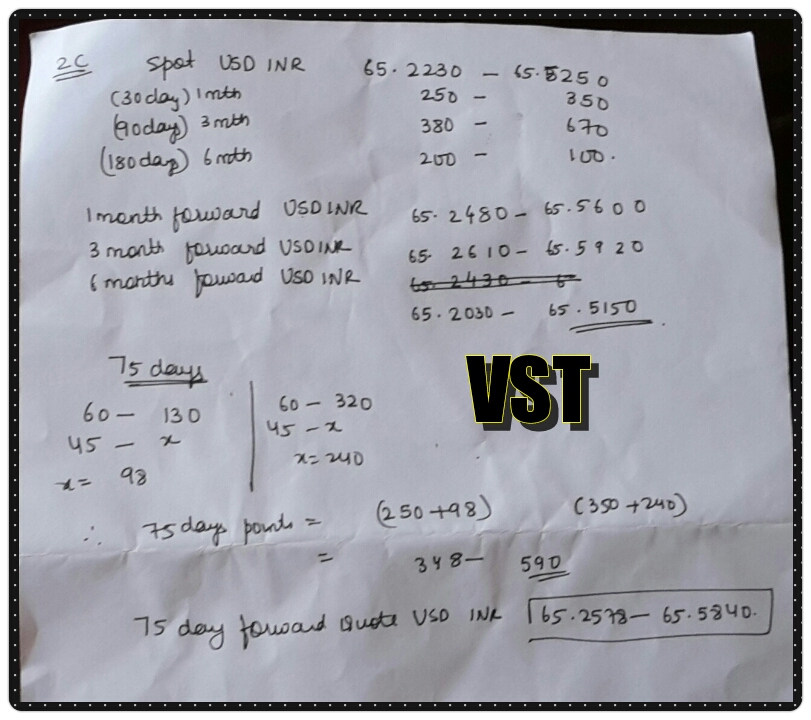 2C Spot USD INR 65.2230 - 65.5250
(30day) 1mth 250 - 350
(90day) 3mth 380 - 670
(180day) 6mth 200 - 100.
1 month forward USD INR 65.2480 - 65.5600
3 month forward USD INR 65.2610 - 65.5920
6 months forward USD INR 65.2430 - 6
65.2030 - 65.5150
75 days
60 - 130
45 - x
x = 98
60 - 320
45 - x
x = 240
VST
∴ 75 days points = (250+98) (350+240)
= 348 - 590
75 day forward Quote USD INR 65.2578 - 65.5840.